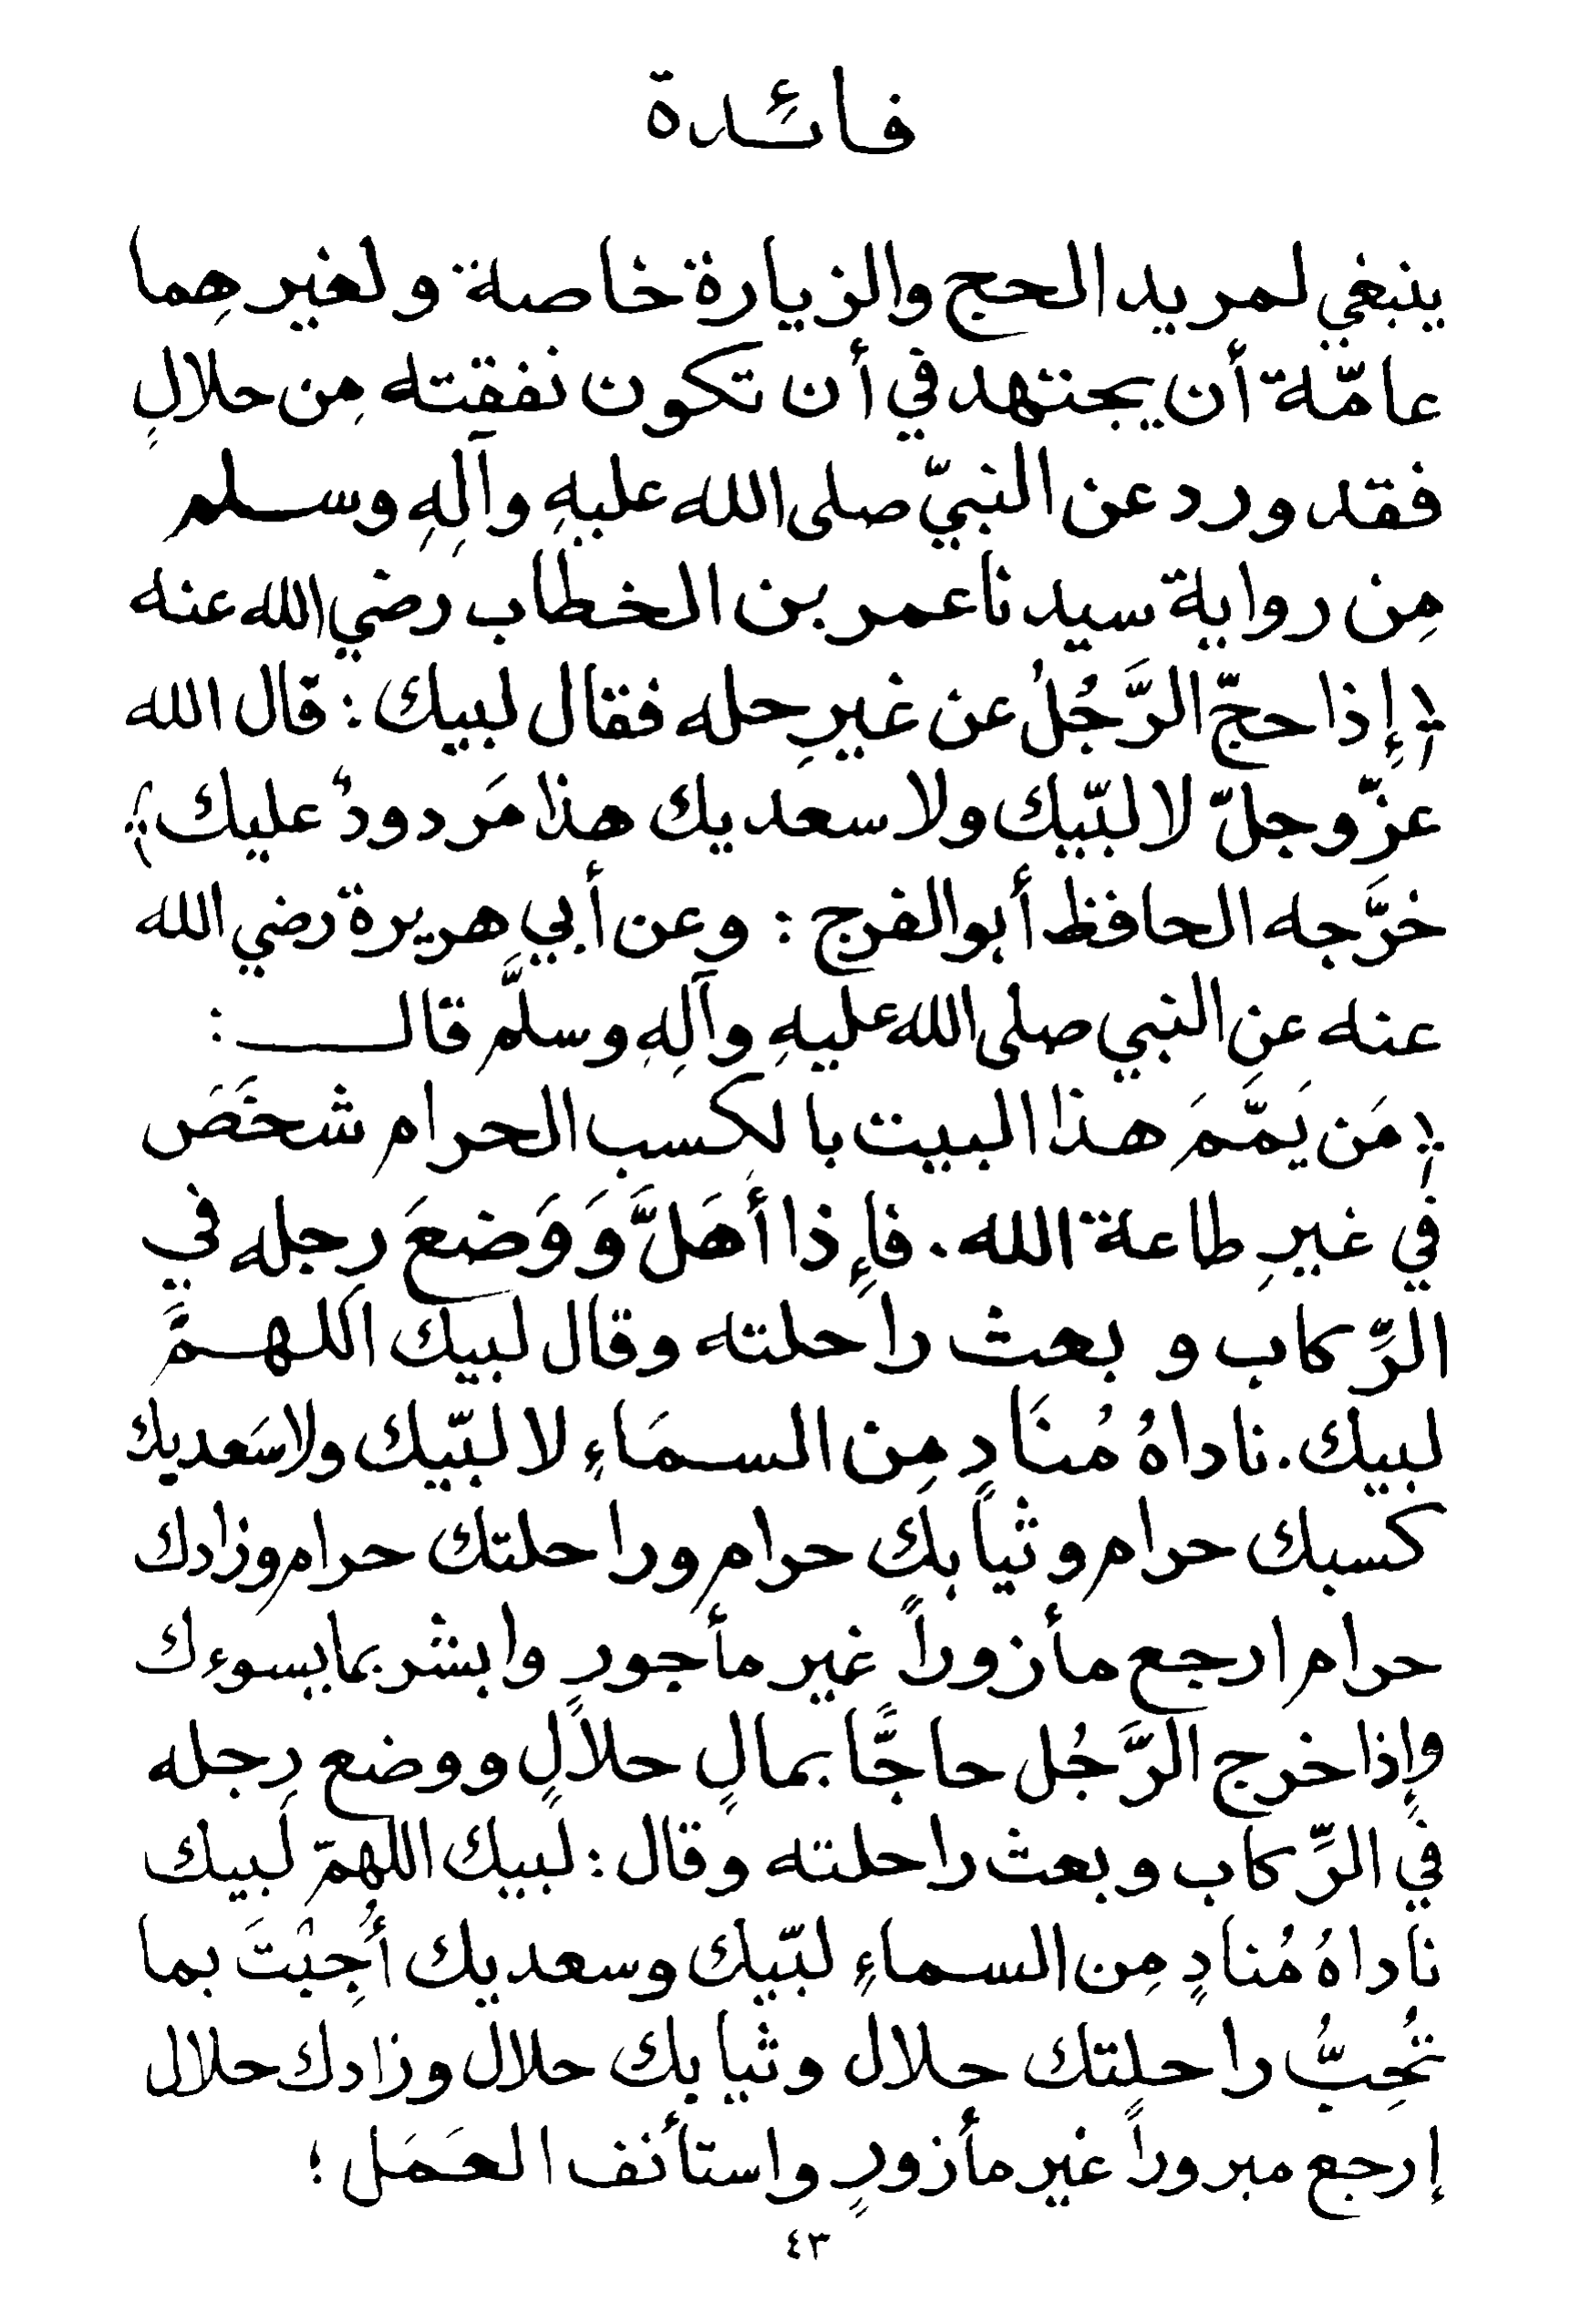 فائدة
ينبغي لمريد الحج والزيارة خاصة ولغيرهِما
عامّة أن يجتهد في أن تكون نفقته مِن حلالٍ
فقد ورد عن النبيّ صلى الله عليهِ وآلِهِ وسلم
مِن رواية سيدنا عمر بن الخطاب رضي الله عنه
﴿ إِذا حجّ الرَّجُلُ عن غيرِ حله فقال لبيك : قال الله
عزّ وجلّ لا لبّيك ولا سعديك هذا مَردودٌ عليك ﴾
خرَّجه الحافظ أبو الفرج : وعن أبي هريرة رضي الله
عنه عنِ النبي صلى الله عليهِ وآلِهِ وسلَّم قال :
﴿ مَن يَمَّمَ هذا البيت بالكسبِ الحرام شخَصَ
في غيرِ طاعة الله . فإِذا أهَلَّ وَوَضعَ رِجله في
الرِّكاب وبعث راحلته وقال لبيك اَللهمَّ
لبيك . ناداهُ مُنَادٍ مِن السمَاءِ لا لبّيك ولا سَعديك
كسبك حرام وثيابك حرام وراحلتك حرام وزادك
حرام ارجع مأزوراً غير مأجورٍ وابشر بما يسوءك
وإِذا خرج الرَّجُل حاجًّا بمالٍ حلالٍ ووضع رِجله
في الرِّكاب وبعث راحلته وقال : لبيك اللهمّ لَبيك
ناداهُ مُنادٍ مِن السماءِ لبّيك وسعديك أُجِبْتَ بما
تُحِبُّ راحلتك حلال وثيابك حلال وزادك حلال
إرجع مبروراً غير مأزورٍ واستأنف العَمَل ؛
٤٣